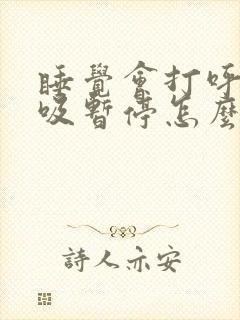 睡覺會打呼
吸暫停怎麼
詩人亦安